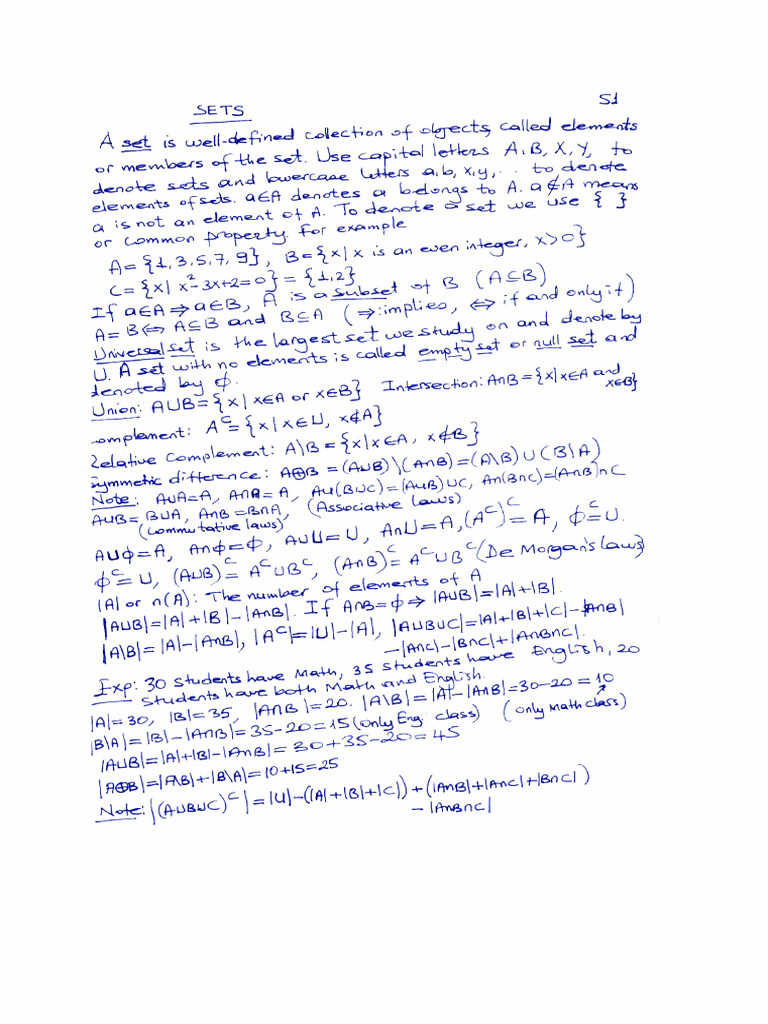 SETS
S1
A set is well-defined collection of objects, called elements
or members of the set. Use capital letters A, B, X, Y, to
denote sets and lowercase letters a, b, x, y, ... to denote
elements of sets. a∈A denotes a belongs to A. a∉A means
a is not an element of A. To denote a set we use { }
or common property. For example
A = {1, 3, 5, 7, 9}, B = {x | x is an even integer, x>0}
C = {x | x²-3x+2=0} = {1,2}
If a∈A ⇒ a∈B, A is a subset of B (A⊆B)
A=B ⇔ A⊆B and B⊆A (⇒: implies, ⇔ if and only if)
Universal set is the largest set we study on and denote by
U. A set with no elements is called empty set or null set and
denoted by ϕ.
Union: A∪B = {x | x∈A or x∈B} Intersection: A∩B = {x | x∈A and
x∈B}
omplement: Aᶜ = {x | x∈U, x∉A}
Relative Complement: A\B = {x | x∈A, x∉B}
ymmetic difference: A⊕B = (A∪B)\(A∩B) = (A\B)∪(B\A)
Note: A∪A=A, A∩A=A, A∪(B∪C)=(A∪B)∪C, A∩(B∩C)=(A∩B)∩C
A∪B=B∪A, A∩B=B∩A, (Associative laws)
(Commutative laws)
A∪ϕ=A, A∩ϕ=ϕ, A∪U=U, A∩U=A, (Aᶜ)ᶜ=A, ϕᶜ=U.
ϕᶜ=U, (A∪B)ᶜ=Aᶜ∪Bᶜ, (A∩B)ᶜ=Aᶜ∪Bᶜ (De Morgan's laws)
|A| or n(A): The number of elements of A
|A∪B|=|A|+|B|-|A∩B|. If A∩B=ϕ ⇒ |A∪B|=|A|+|B|.
|A\B|=|A|-|A∩B|, |Aᶜ|=|U|-|A|, |A∪B∪C|=|A|+|B|+|C|-|A∩B|
-|A∩C|-|B∩C|+|A∩B∩C|.
Exp: 30 students have Math, 35 students have English, 20
students have both Math and English.
|A|=30, |B|=35, |A∩B|=20. |A\B|=|A|-|A∩B|=30-20=10
|B\A|=|B|-|A∩B|=35-20=15 (only Eng. class) (only Math class)
|A∪B|=|A|+|B|-|A∩B|=30+35-20=45
|A⊕B|=|A\B|+|B\A|=10+15=25
Note: |(A∪B∪C)ᶜ|=|U|-(|A|+|B|+|C|)+(|A∩B|+|A∩C|+|B∩C|)
-|A∩B∩C|